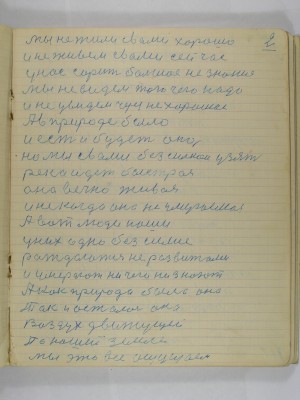 2
мы не жили с вами хорошо
и не живем с вами сейчас
у нас горит большое незнание
мы не видем того чего надо
и не увидем чуи не хорошие
А в природе было
и есть и будет оно,
но мы с вами без силная узят
река идет быстрая
она вечно живая
и не когда она не
А вот люди наши
у них одно без силие
раждаются не развитыми
и умерают ничего не знают
А как природа была она
Так и осталас она
Воздух движущей
По нашей земле
мы это все ощущаем